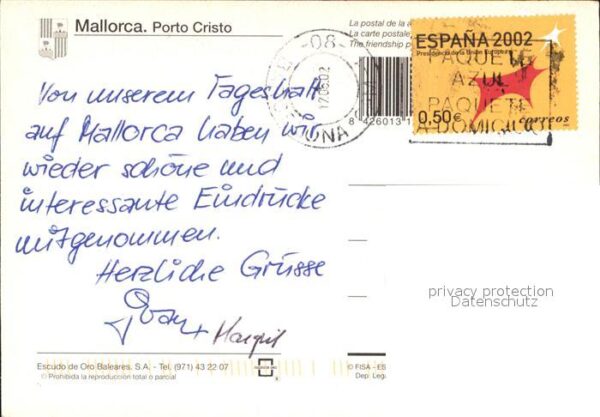 Mallorca. Porto Cristo
La postal de la
La carte postale
The friendship p
ESPAÑA 2002
Presidencia de la Unión Europea
0,50€ correos
-08-
17.05.02
NA
PAQUETE
AZUL
PAQUETE
A DOMICILIO
8 426013 1
Von unserem Tageshalt
auf Mallorca haben wir
wieder schöne und
interessante Eindrücke
mitgenommen.
Herzliche Grüsse
+ Margrit
privacy protection
Datenschutz
Escudo de Oro Baleares. S.A. - Tel. (971) 43 22 07
© Prohibida la reproducción total o parcial
© FISA - ES
Dep. Leg.